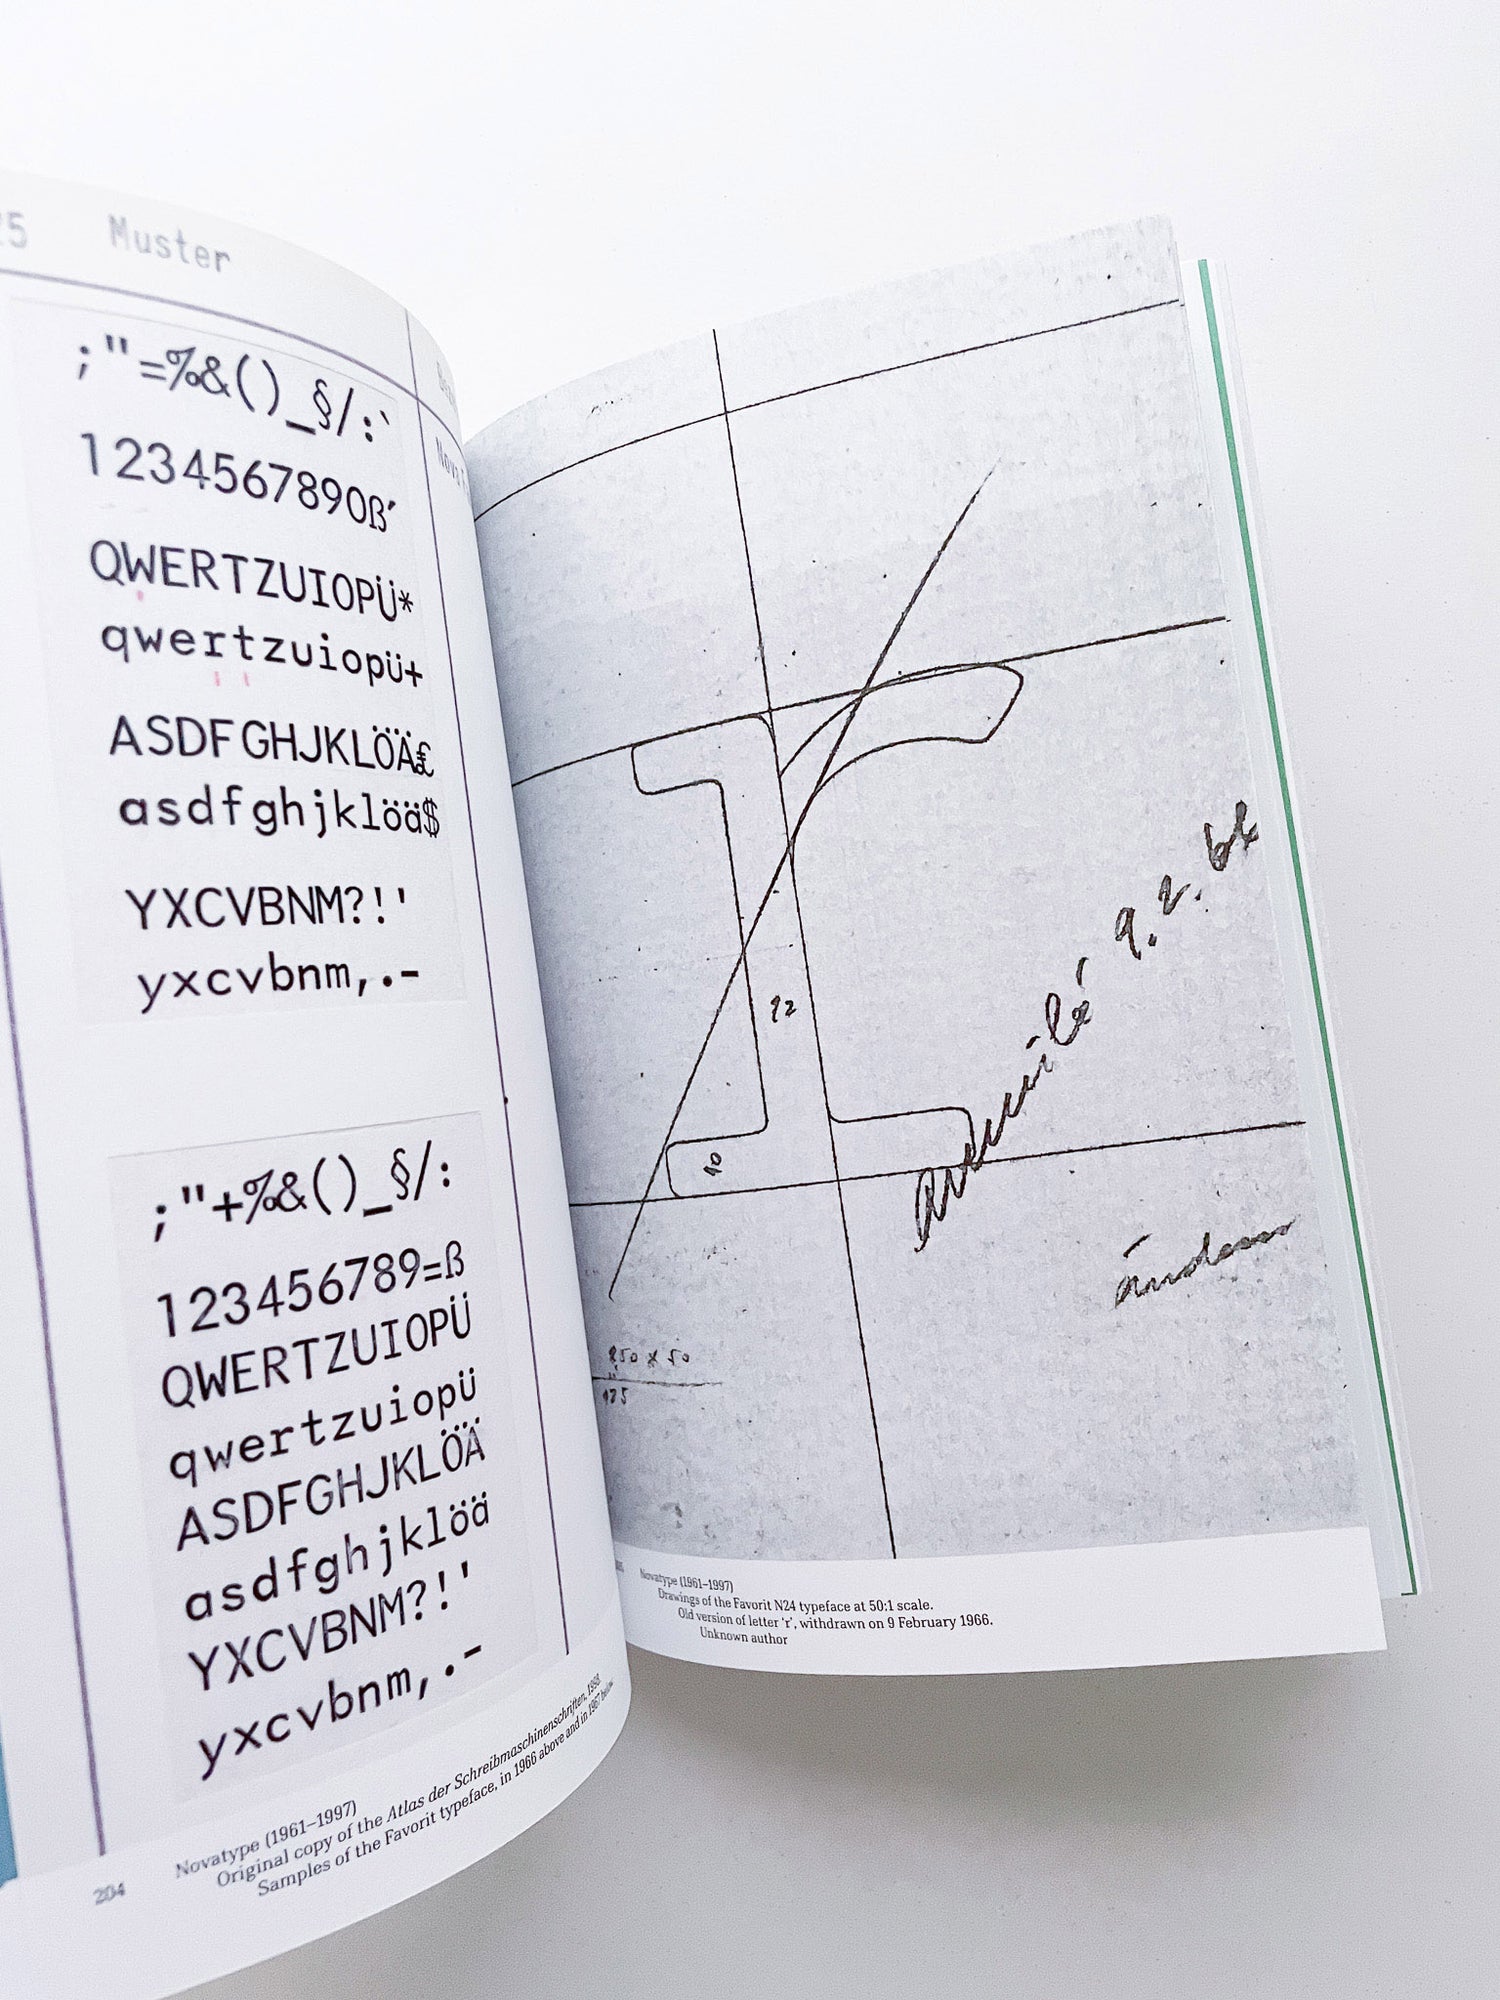 25 Muster
;"=%&()_§/:`
1234567890ß´
QWERTZUIOPÜ*
qwertzuiopü+
ASDFGHJKLÖÄ£
asdfghjklöä$
YXCVBNM?!'
yxcvbnm,.-
;"+%&()_§/:
123456789=ß
QWERTZUIOPÜ
qwertzuiopü
ASDFGHJKLÖÄ
asdfghjklöä
YXCVBNM?!'
yxcvbnm,.-
204
Novatype (1961–1997)
Original copy of the Atlas der Schreibmaschinenschriften, 1998.
Samples of the Favorit typeface, in 1966 above and in 1967 below.
12
10
9.2.66
ändern
Novatype (1961–1997)
Drawings of the Favorit N24 typeface at 50:1 scale.
Old version of letter ‘r’, withdrawn on 9 February 1966.
Unknown author